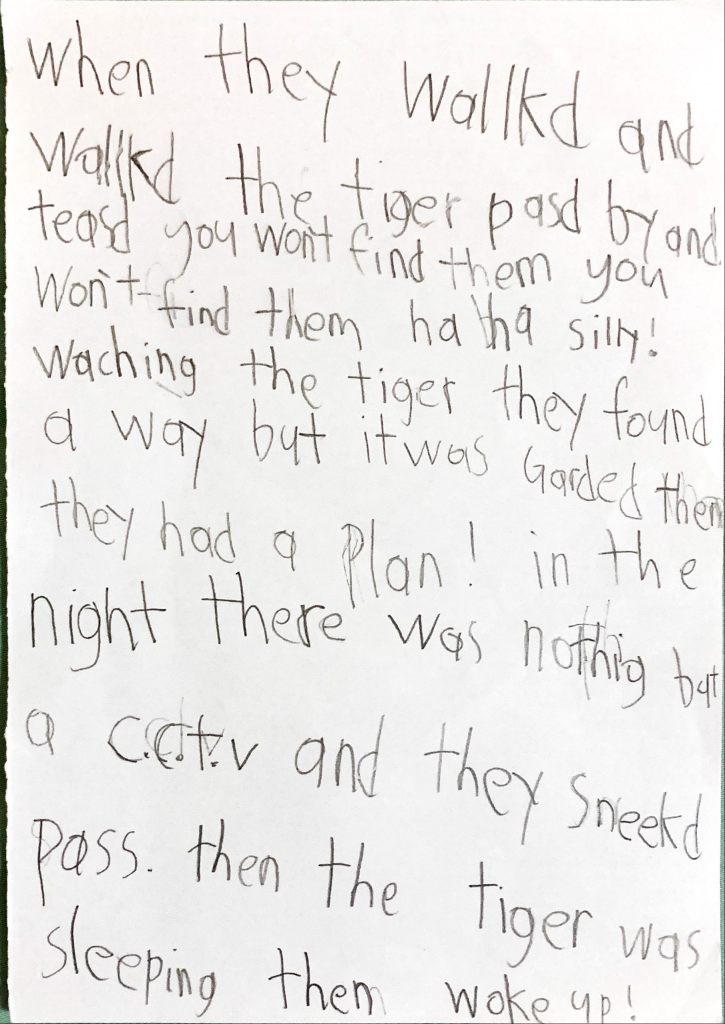 When they Wallkd and
Wallkd the tiger pasd by and
teasd you won't find them you
Won't find them ha ha silly!
Waching the tiger they found
a way but it was Garded then
they had a Plan! in the
night there was nothig but
a C.C.t.v and they Sneekd
Pass. then the tiger was
sleeping them woke up!